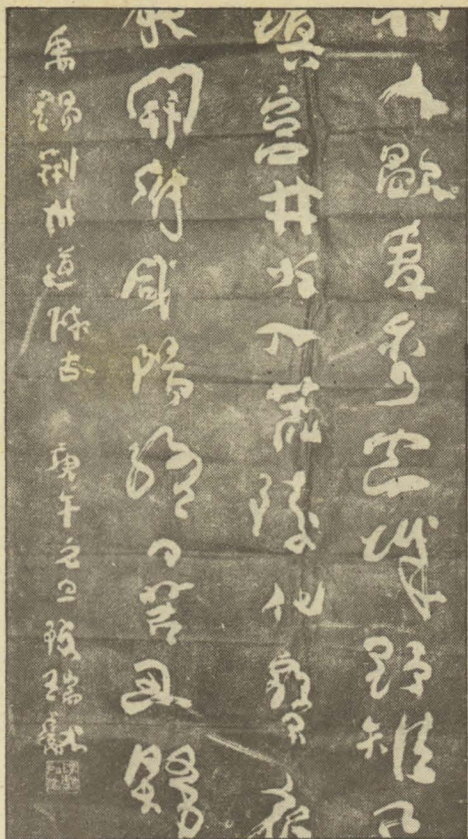 人歇麥秀空城野雉
填宮井火入荒陵化寶衣
開府咸陽終日苦思歸
禹錫荊州道懷古 庚午